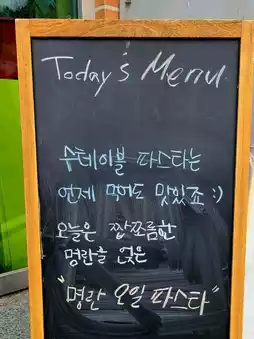 Today's Menu
수테이블 파스타는
언제 먹어도 맛있죠 :)
오늘은 짭쪼름한
명란을 얹은
"명란 오일 파스타"